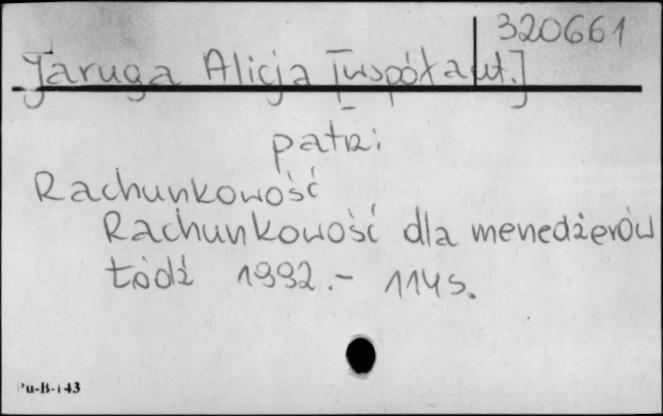 320661
Jaruga Alicja [współaut.]
patrz:
Rachunkowość
Rachunkowość dla menedżerów
Łódź 1992.- 114 s.
Pu-B-143